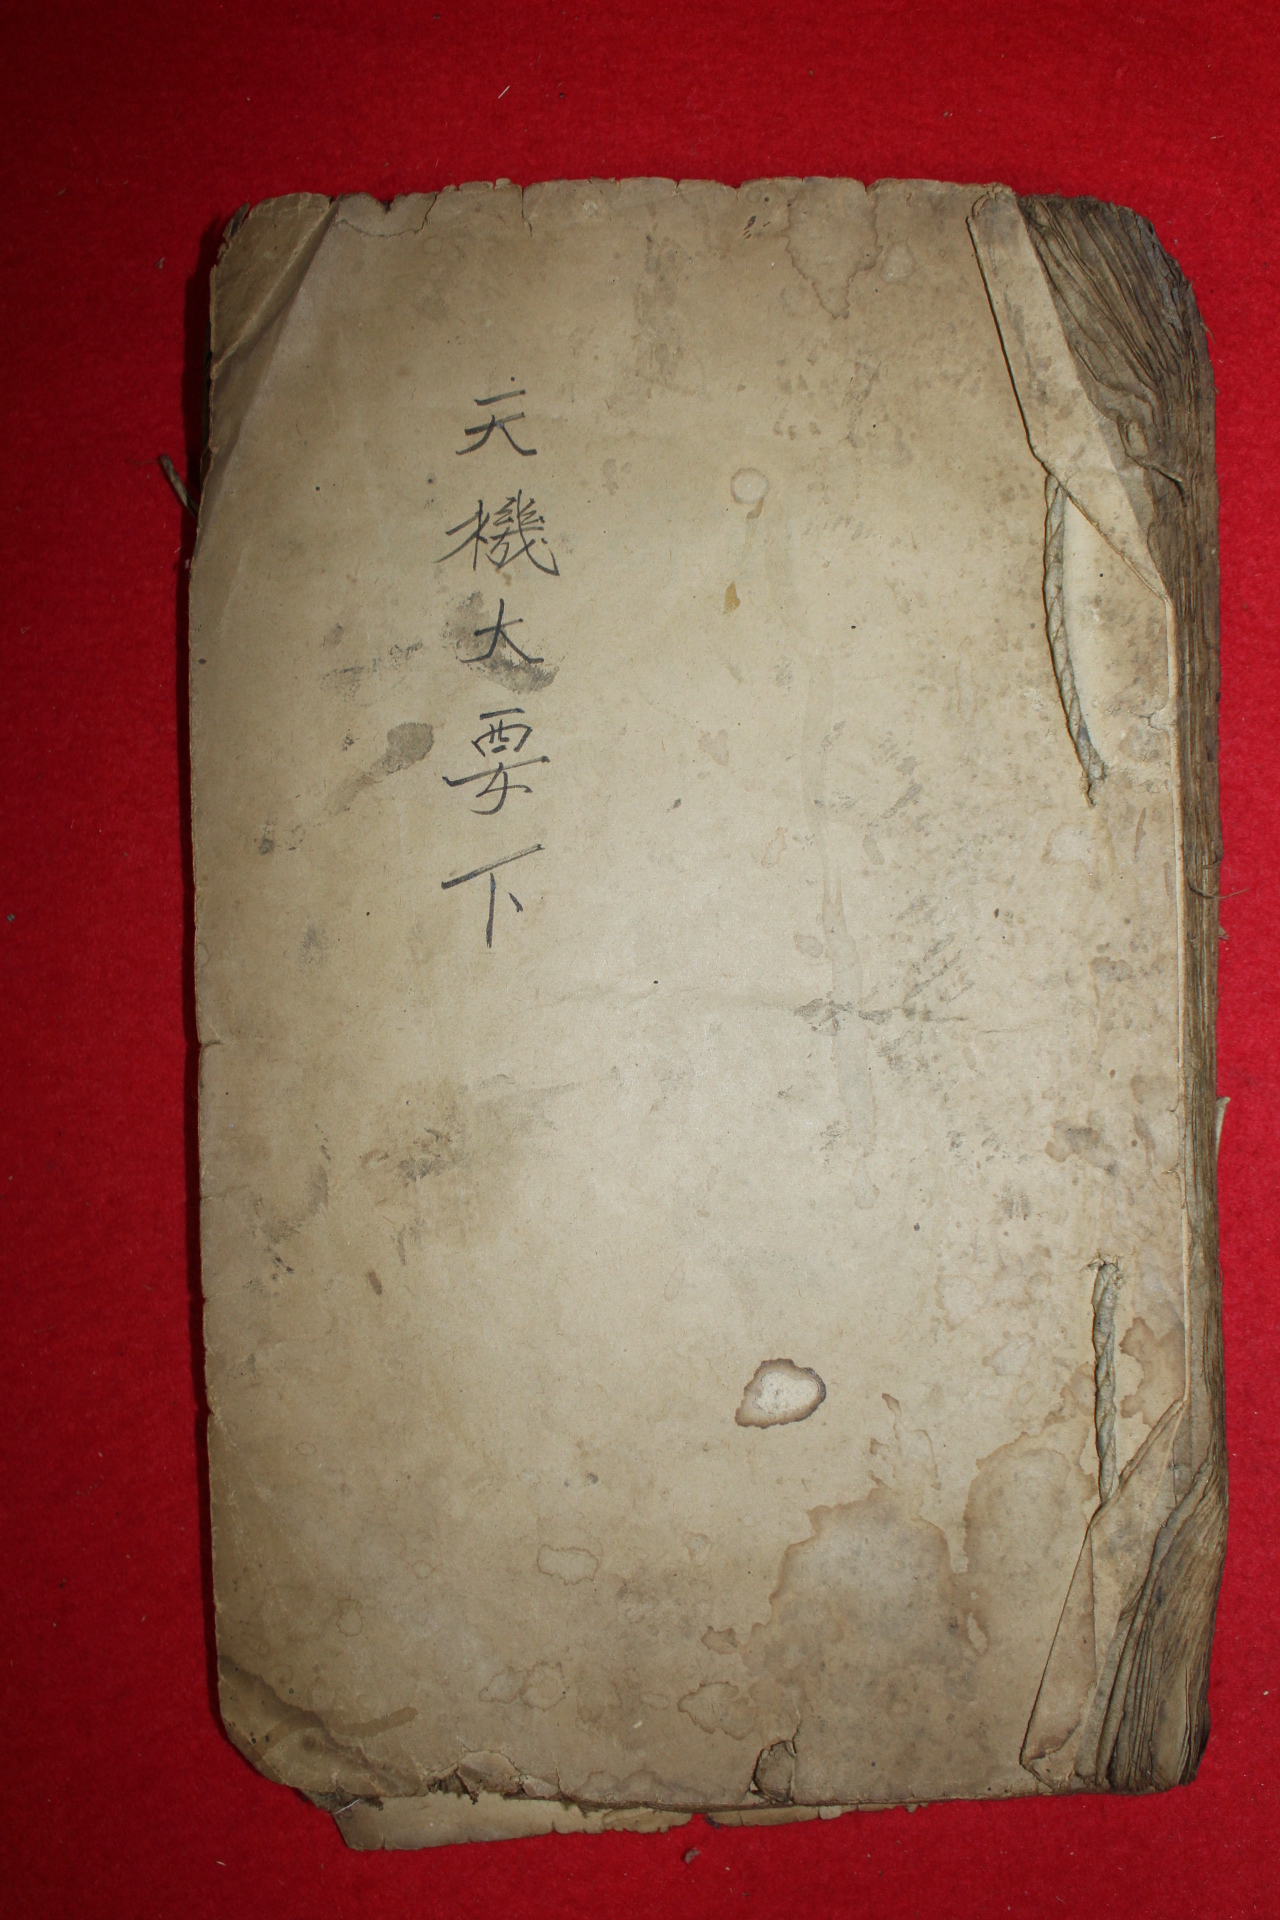 天機大要下